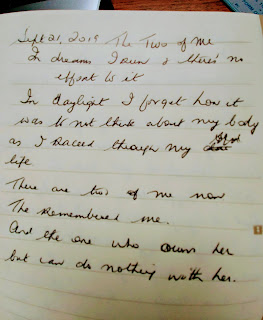 Sept 21, 2019 The Two of Me
In dreams I run & there's no
effort to it
In daylight I forget how it
was to not think about my body
as I raced through my
life
There are two of me now
The remembered me.
And the one who owns her
but can do nothing with her.